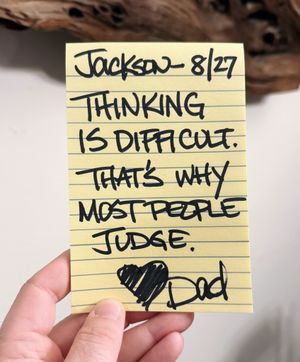 Jackson- 8/27
THINKING
IS DIFFICULT.
THAT'S WHY
MOST PEOPLE
JUDGE.
Dad